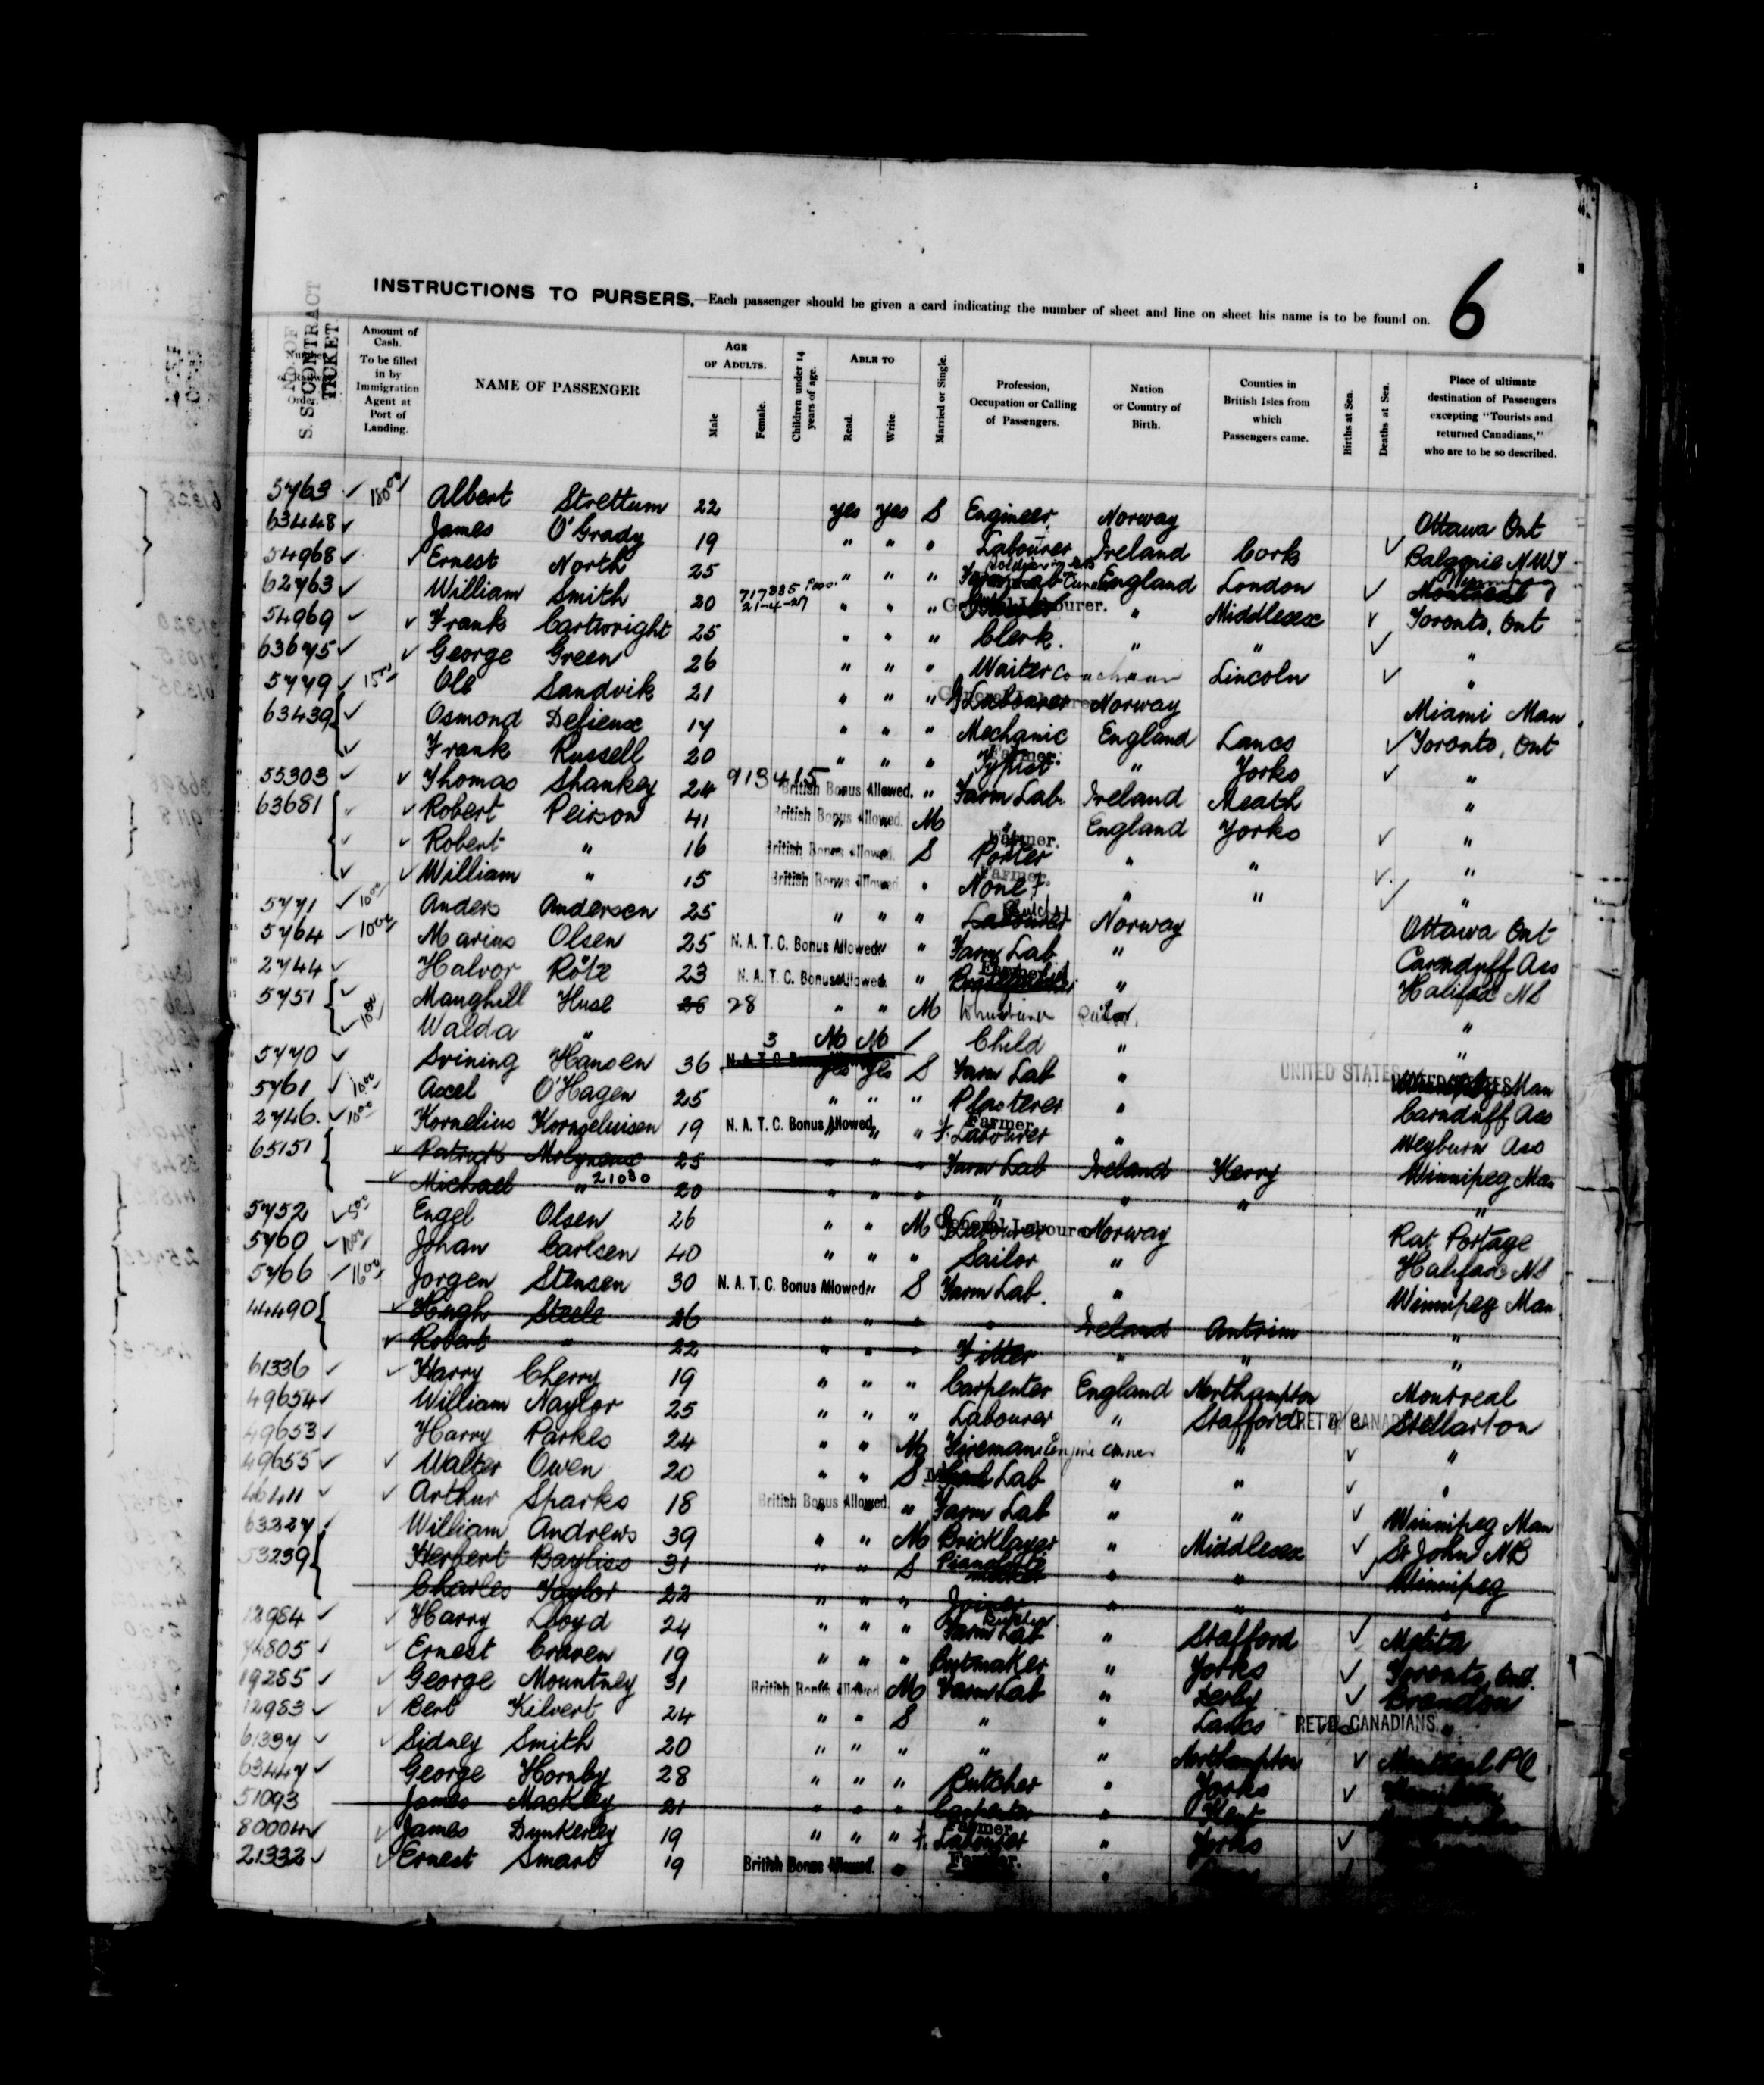 6
INSTRUCTIONS TO PURSERS.—Each passenger should be given a card indicating the number of sheet and line on sheet his name is to be found on.
S. S. CONTRACT TICKET
Amount of Cash. To be filled in by Immigration Agent at Port of Landing.
NAME OF PASSENGER
AGE OF ADULTS. Male Female.
Children under 14 years of age.
ABLE TO Read. Write
Married or Single.
Profession, Occupation or Calling of Passengers.
Nation or Country of Birth.
Counties in British Isles from which Passengers came.
Births at Sea.
Deaths at Sea.
Place of ultimate destination of Passengers excepting "Tourists and returned Canadians," who are to be so described.
5763 ✓ 180 00 Albert Strettum 22 yes yes S Engineer Norway Ottawa Ont
63448 ✓ James O'Grady 19 " " " Labourer Ireland Cork ✓ Balgonie NWT
54968 ✓ ✓ Ernest North 25 " " " England London ✓ Winnipeg
62763 ✓ William Smith 20 717835 21-4-27 " " " General Labourer. " Middlesex ✓ Toronto, Ont
54969 ✓ ✓ Frank Cartwright 25 " " " Clerk. " " ✓ "
63675 ✓ ✓ George Green 26 " " " Waiter Coachman Lincoln ✓ "
5779 ✓ 15 Ole Sandvik 21 " " " General Labourer Norway Miami Man
63439 { ✓ Osmond Defieux 17 " " " Mechanic England Lancs ✓ Toronto, Ont
✓ Frank Russell 20 " " " Farmer. " Yorks ✓ "
55303 ✓ ✓ Thomas Shankey 24 913415 British Bonus Allowed. " Farm Lab. Ireland Meath "
63681 { ✓ Robert Peirson 41 British Bonus Allowed. M " England Yorks ✓ "
✓ ✓ Robert " 16 British Bonus Allowed S Porter Farmer. " " ✓ "
✓ ✓ William " 15 British Bonus Allowed " None Farmer. " " ✓ "
5771 ✓ 10 00 Anders Andersen 25 " " " Labourer Norway Ottawa Ont
5764 ✓ 10 00 Marius Olsen 25 N. A. T. C. Bonus Allowed " " Farm Lab " Carnduff Ass
2744 ✓ Halvor Rötz 23 N. A. T. C. Bonus Allowed. " Farmer " Halifax NS
5751 { ✓ Manghill Huse 26 28 " " M "
✓ 10 00 Walda " 3 No No / Child " "
5770 ✓ Svining Hansen 36 yes yes S Farm Lab " UNITED STATES Man
5761 ✓ 10 00 Axel O'Hagen 25 " " " Plasterer " Carnduff Ass
2746. ✓ 10 00 Kornelius Korneliusen 19 N. A. T. C. Bonus Allowed " " F. Labourer Farmer " Weyburn Ass
65151 { ✓ Patrick Molyneux 25 " " " Farm Lab Ireland Kerry Winnipeg Man
✓ Michael " 21080 20 " " " " " " "
5752 ✓ Engel Olsen 26 " " M General Labourer Norway Rat Portage
5760 ✓ 10 00 Johan Carlsen 40 " " " Sailor " Halifax NS
5766 ✓ 16 00 Jorgen Stensen 30 N. A. T. C. Bonus Allowed " S Farm Lab. " Winnipeg Man
44490 { ✓ Hugh Steele 26 " " " " Ireland Antrim "
✓ Robert " 22 " " " Fitter " " "
61336 ✓ ✓ Harry Cherry 19 " " " Carpenter England Northampton Montreal
49654 ✓ William Naylor 25 " " " Labourer " Stafford RET'D CANADIANS Stellarton
49653 ✓ Harry Parkes 24 " " M Fireman " ✓ "
49655 ✓ ✓ Walter Owen 20 " " S Lab " " ✓ "
✓ ✓ Arthur Sparks 18 British Bonus Allowed. " Farm Lab " " ✓ Winnipeg Man
63227 ✓ William Andrews 39 " " M Bricklayer " Middlesex ✓ St John NB
53239 { Herbert Bayliss 31 " " S Pianoforte maker " " ✓ Winnipeg
Charles Taylor 22 " " " Joiner " " "
12984 ✓ ✓ Harry Lloyd 24 " " " Farm Lab Butcher " Stafford ✓ Melita
74805 ✓ Ernest Craven 19 " " " " Yorks ✓ Toronto, Ont.
19285 ✓ ✓ George Mountney 31 British Bonus Allowed M Farm Lab " Derby ✓ Brandon
12983 ✓ ✓ Bert Kilvert 24 " " S " " Lancs RET'D CANADIANS. "
61337 ✓ ✓ Sidney Smith 20 " " " " " Northampton ✓ Montreal PQ
63447 ✓ George Hornby 28 " " " Butcher " Yorks ✓
51093 James Mackley 21 " " " Carpenter " Kent
80004 ✓ ✓ James Dunkerley 19 " " " F. Labourer Farmer " Yorks ✓
21332 ✓ ✓ Ernest Smart 19 British Bonus Allowed. " Farmer. "